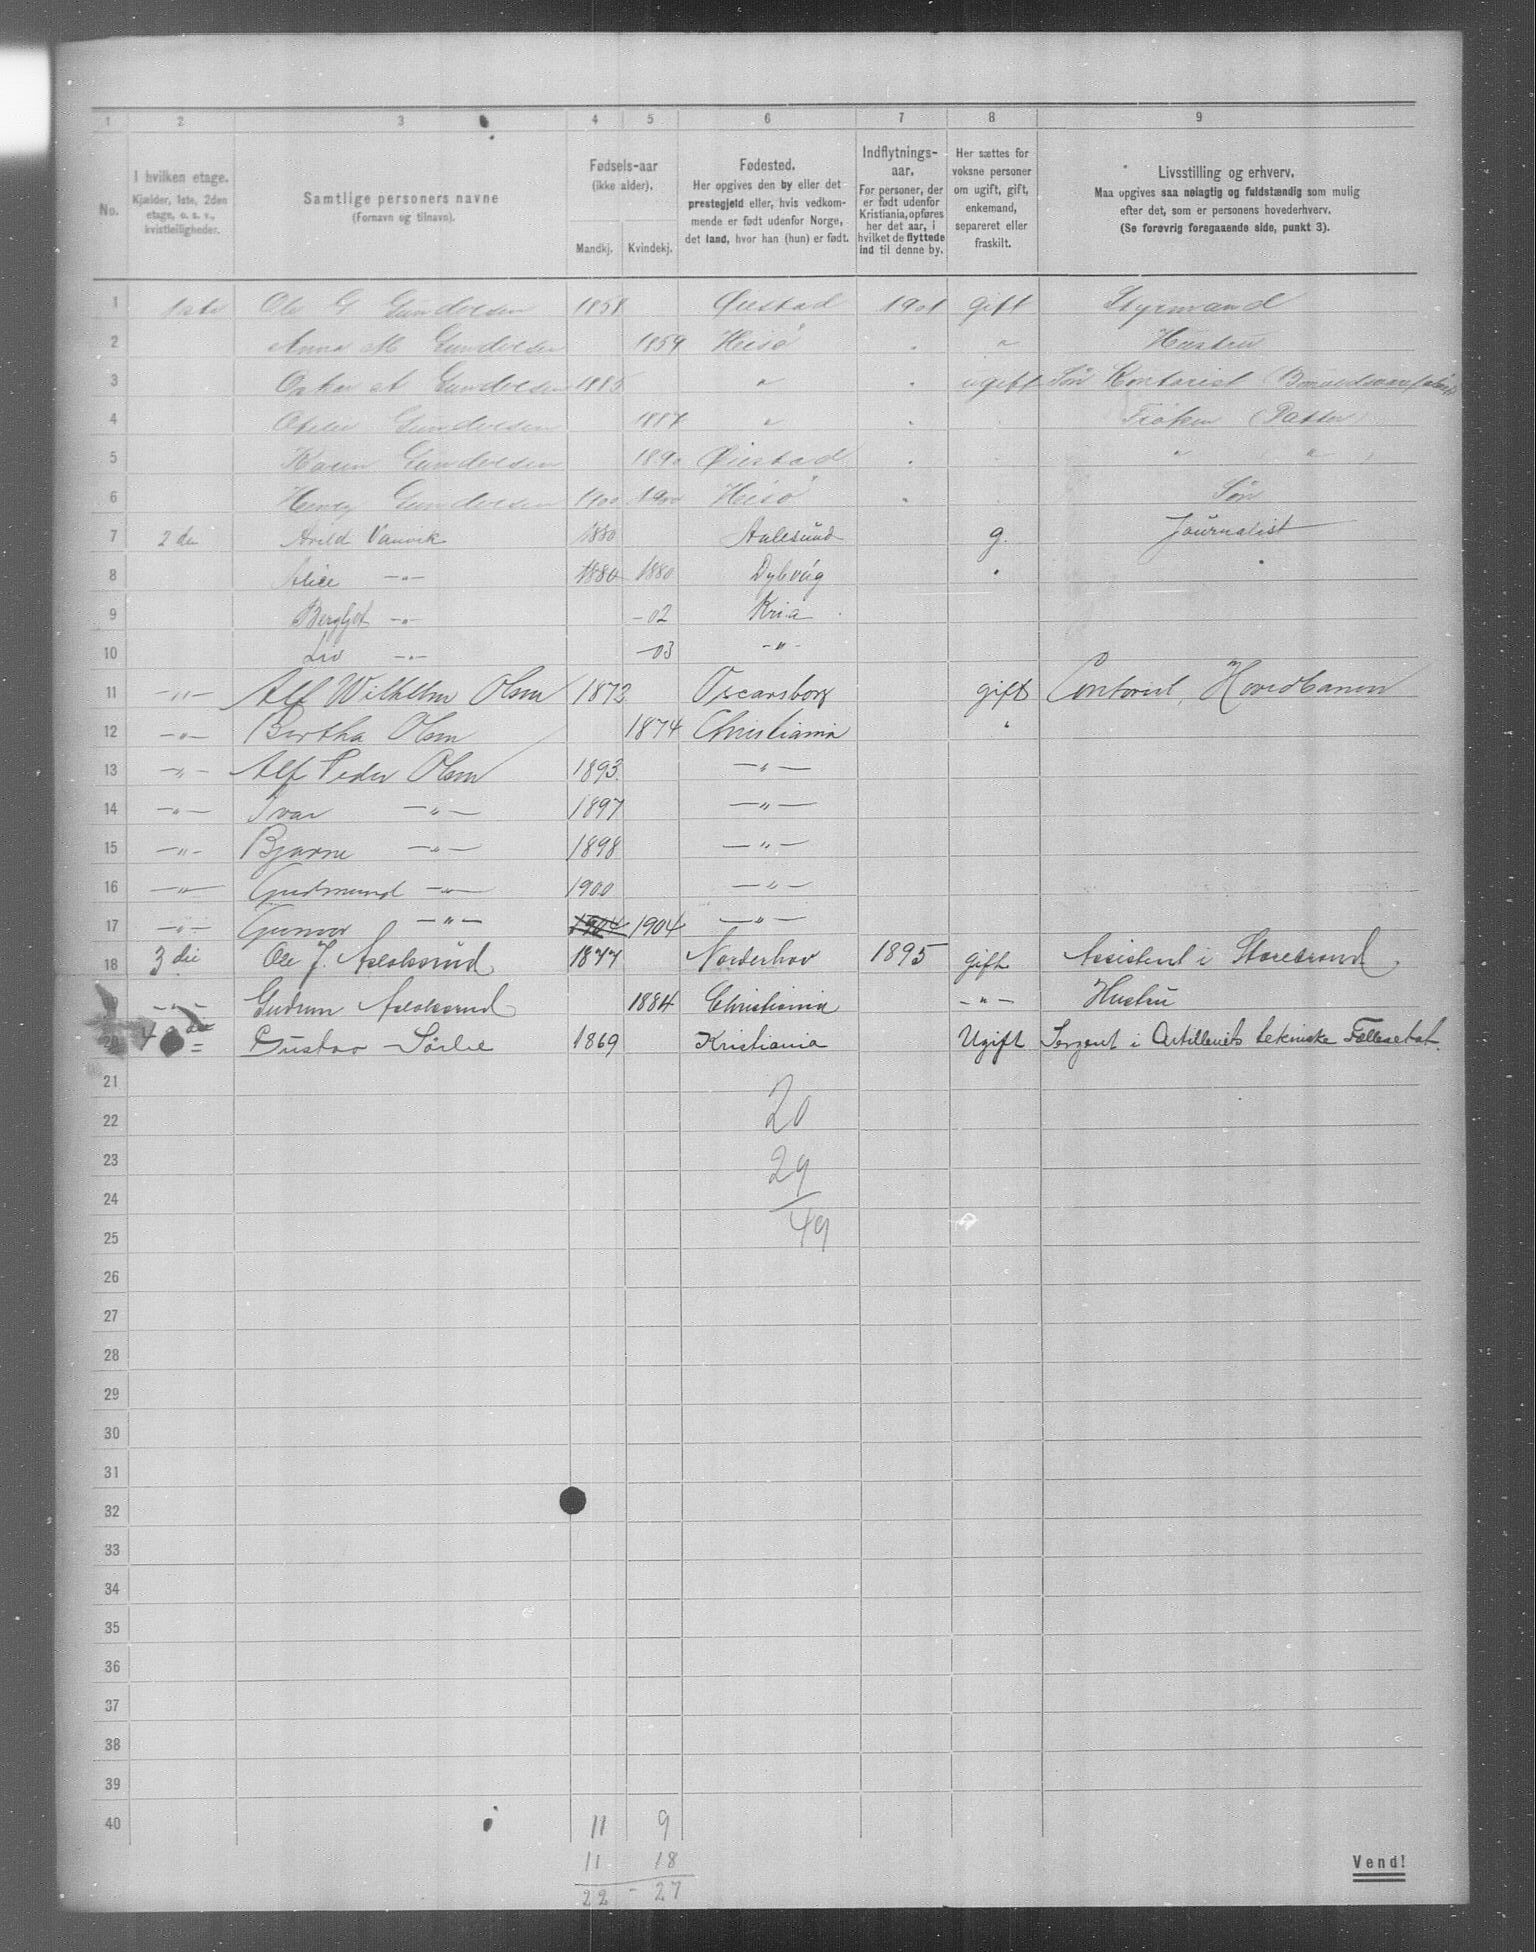 1 2 3 4 5 6 7 8 9
No.
I hvilken etage.
Kjælder, 1ste, 2den
etage, o. s. v.,
kvistleiligheder.
Samtlige personers navne
(Fornavn og tilnavn).
Fødsels-aar
(ikke alder).
Mandkj. Kvindekj.
Fødested.
Her opgives den by eller det
prestegjeld eller, hvis vedkom-
mende er født udenfor Norge,
det land, hvor han (hun) er født.
Indflytnings-
aar.
For personer, der
er født udenfor
Kristiania, opføres
her det aar, i
hvilket de flyttede
ind til denne by.
Her sættes for
voksne personer
om ugift, gift,
enkemand,
separeret eller
fraskilt.
Livsstilling og erhverv.
Maa opgives saa nøiagtig og fuldstændig som mulig
efter det, som er personens hovederhverv.
(Se forøvrig foregaaende side, punkt 3).
1 1ste Ole G Gundersen 1858 Øiestad 1901 gift Styrmand
2 Anna M Gundersen 1859 Hisö " " Hustru
3 Oskar A Gundersen 1885 " " ugift Søn Kontorist
4 Gundersen 1887 " " Frøken (Datter)
5 Karen Gundersen 1890 Øiestad " " "
6 Henry Gundersen 1900 1900 Hisö " Søn
7 2den Arild Vanvik 1880 Aalesund g. Journalist
8 Alice —"— 1880 1880 Dybvåg "
9 Bergljot —"— -02 Kria
10 Liv —"— -03 -"-
11 —"— Alf Wilhelm Olsen 1872 Oscarsborg gift Contorist, Hovedbanen
12 —"— Bertha Olsen 1874 Christiania "
13 —"— Alf Peder Olsen 1893 —"—
14 —"— Ivar —"— 1897 —"—
15 —"— Bjarne —"— 1898 —"—
16 —"— Gudmund —"— 1900 —"—
17 —"— Gunvor —"— 1904 1904 —"—
18 3die Ole J. Aslaksrud 1877 Norderhov 1895 gift Assistent i Storebrand.
—"— Gudrun Aslaksrud 1884 Christiania —"— Hustru
20 4de Gustav Sörlie 1869 Kristiania Ugift Sergent i Artilleriets tekniske Fællesetat.
21
22 20
23 29
24
25 49
26
27
28
29
30
31
32
33
34
35
36
37
38
39
40 11 9
11 18
22 - 27
Vend!